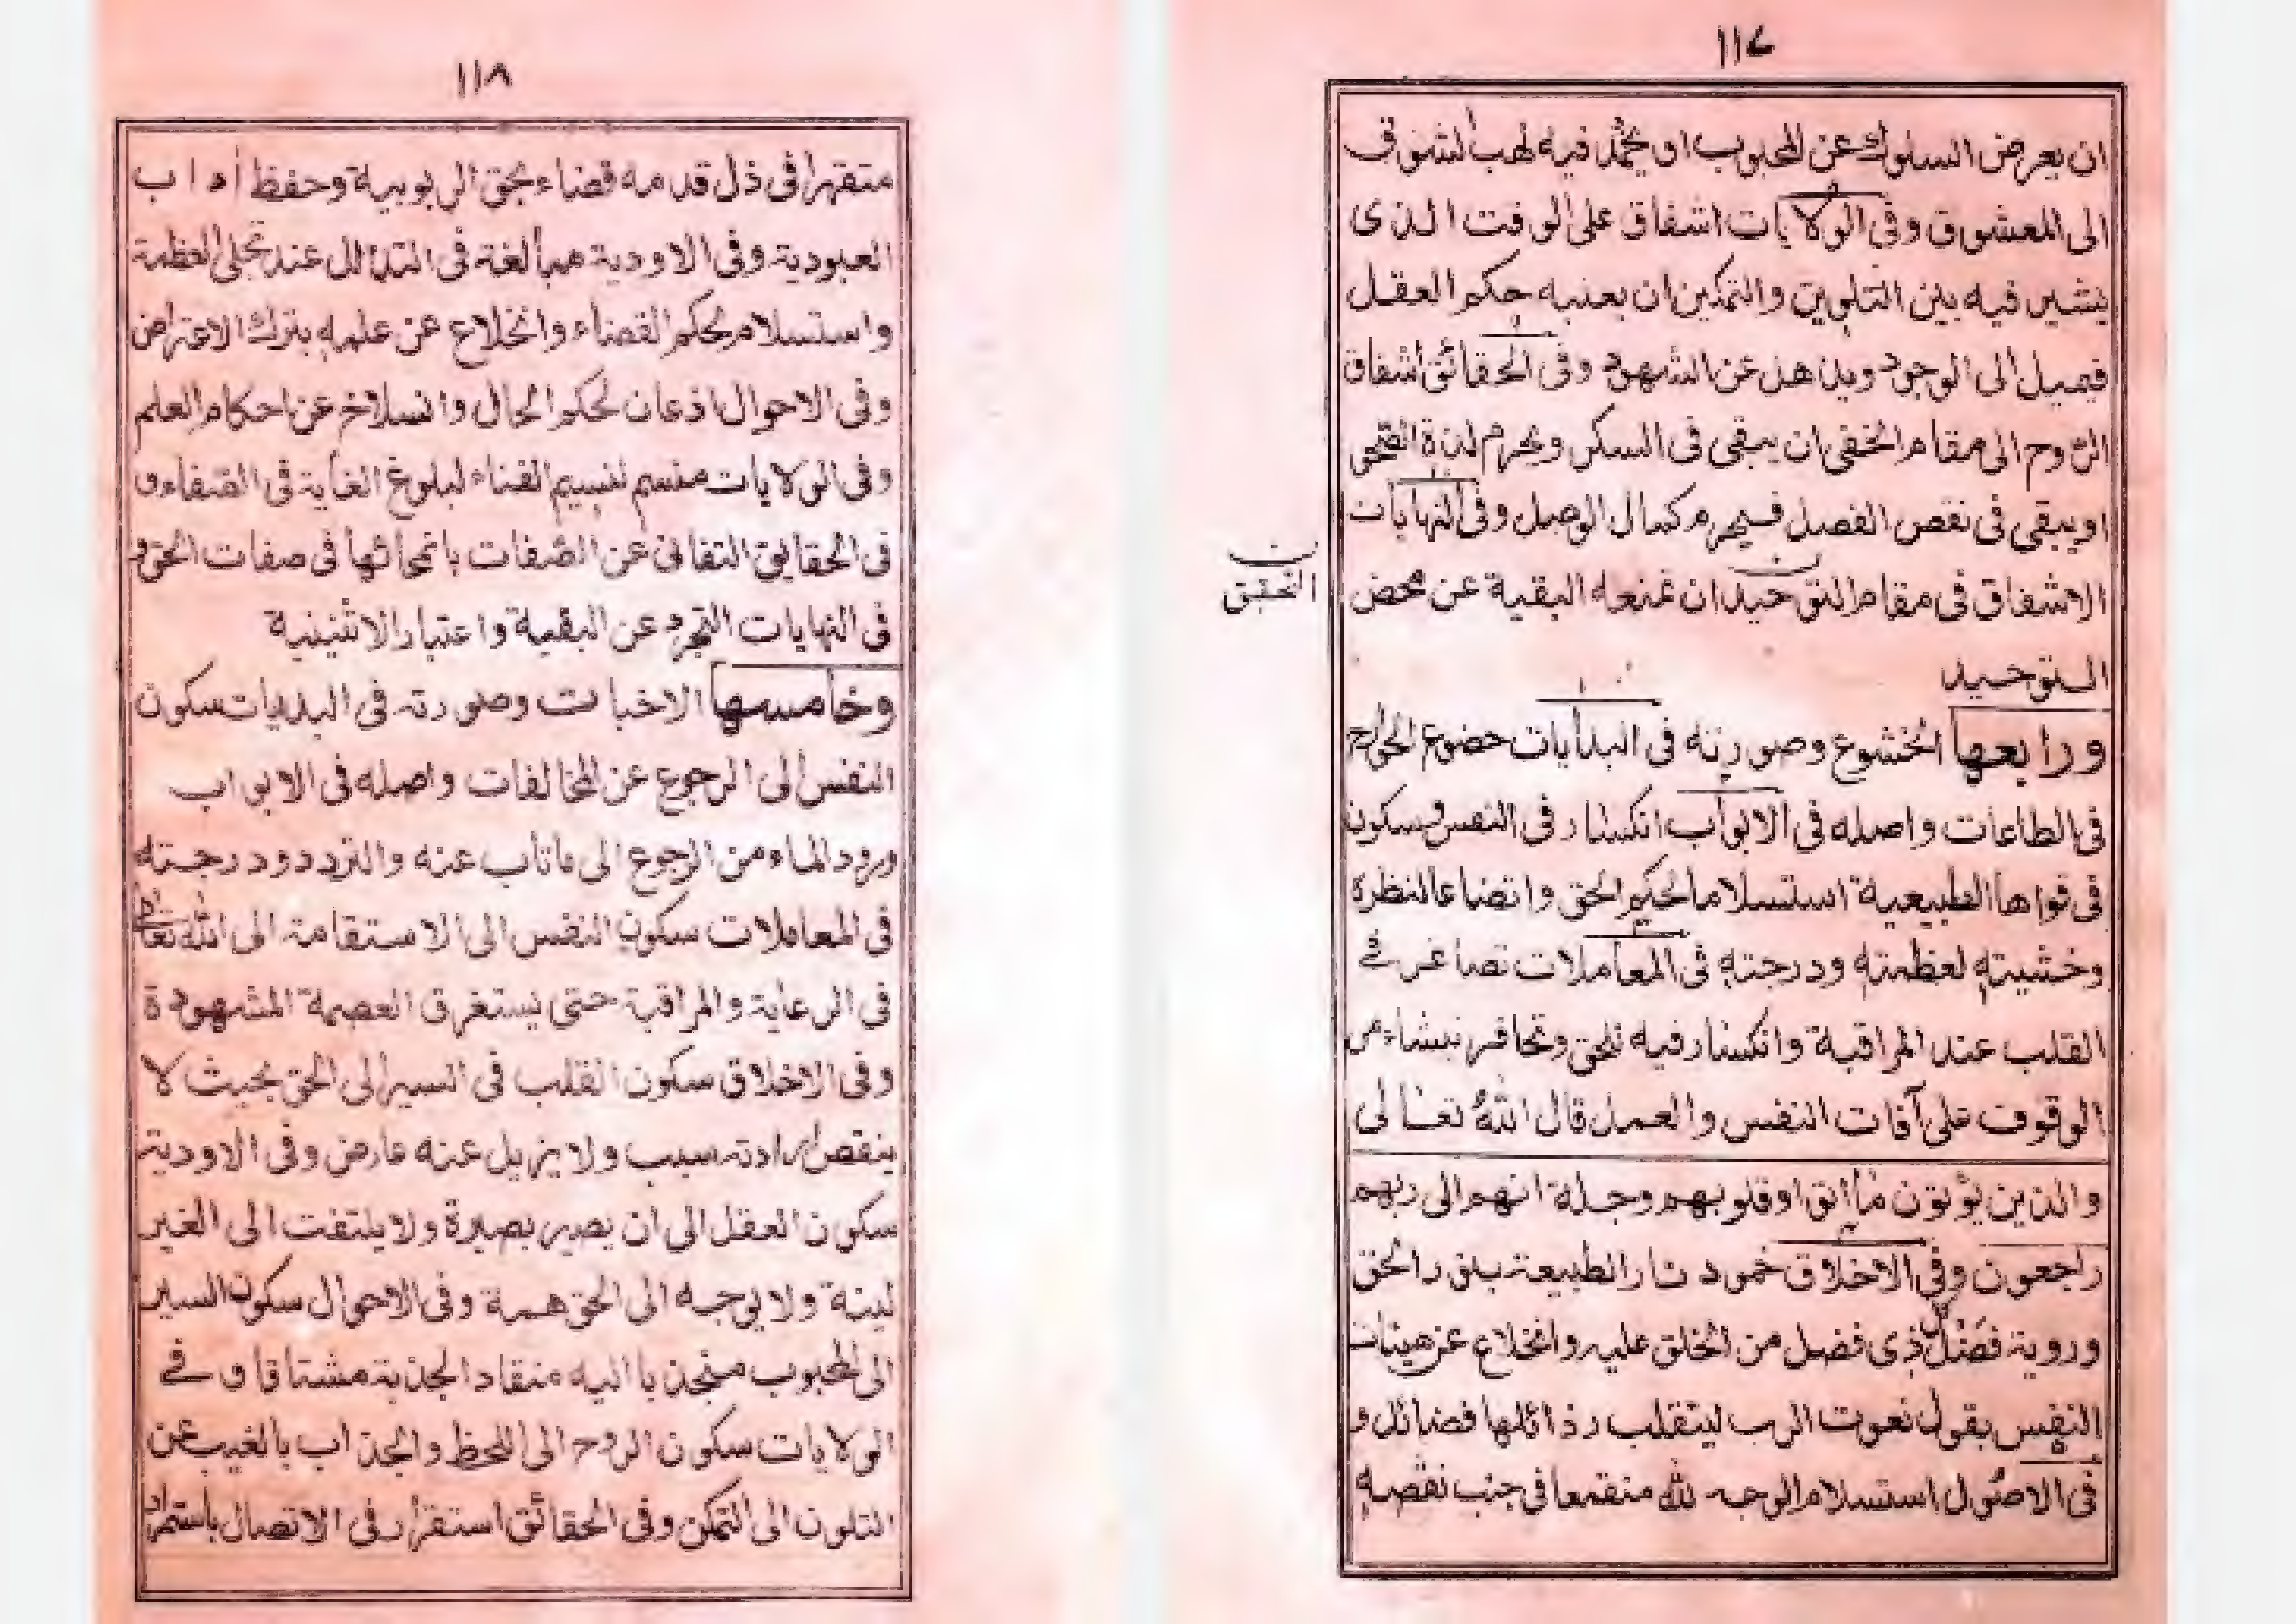 ١١٧
ان يعرض السلوك عن المحبوب او يخمد فيه لهب الشوق
الى المعشوق وفى الولايات اشفاق على الوقت الذى
يشير فيه بين التلوين والتمكين ان بعنبه حكم العقل
فيميل الى الوجود ويذهل عن الشهود وفى الحقائق اشفاق
الروح الى مقام الخفى ان يبقى فى السكر ويحرم لذة
او يبقى فى نقص الفصل فيحرم كمال الوصل وفى النهايات
الاشفاق فى مقام التوحيد ان تمنعه البقية عن محض
ن
التحقق
التوحيد
ورابعها الخشوع وصورته فى البدايات خضوع الجوارح
فى الطاعات واصله فى الابواب انكسار فى النفس وسكون
فى قواها الطبيعية استسلاما لحكم الحق واتضاعا لنظره
وخشيته لعظمته ودرجته فى المعاملات تصاغر فى
القلب عند المراقبة وانكسار فيه للحق ينشاء من
الوقوف على آفات النفس والعمل قال الله تعالى
والذين يؤتون ما اتوا وقلوبهم وجلة انهم الى ربهم
راجعون وفى الاخلاق خمود نار الطبيعة بنور الحق
وروية فضل كل ذى فضل من الخلق عليه وانخلاع عن هيئات
النفس بقول نعوت الرب لينقلب رذائلها فضائل و
فى الاصول استسلام الوجه لله منقمعا فى جنب نقصه
١١٨
متقهرا فى ذل قدمه قضاء بحق الربوبية وحفظ اداب
العبودية وفى الاودية مبالغة فى التذلل عند تجلى العظمة
واستسلام لحكم القضاء وانخلاع عن علمه بترك الاعتراض
وفى الاحوال اذعان لحكم الحال وانسلاخ عن احكام العلم
وفى الولايات نسيم الفناء لبلوغ الغاية فى الصفاء و
فى الحقايق التفانى عن الصفات بانمحائها فى صفات الحق و
فى النهايات التجرد عن البقية واعتبار الاثنينية
وخامسها الاخبات وصورته فى البدايات سكون
النفس الى الرجوع عن المخالفات واصله فى الابواب
ورود الماء من الرجوع الى ما تاب عنه والتردد ودرجته
فى المعاملات سكون النفس الى الاستقامة الى الله تعالى
فى الرعاية والمراقبة حتى يستغرق العصمة المشهودة
وفى الاخلاق سكون القلب فى السير الى الحق بحيث لا
ينقص ارادته سبب ولا يزيل عنه عارض وفى الاودية
سكون العقل الى ان يصير بصيرة ولا يلتفت الى الغير
لينة ولا يوجه الى الحق همة وفى الاحوال سكون السير
الى المحبوب منجذبا اليه منقادا لجذبة مشتاقا و فى
الولايات سكون الروح الى اللحظ والجذاب بالغيب عن
التلون الى التمكن وفى الحقائق استقرار فى الاتصال باستمرار